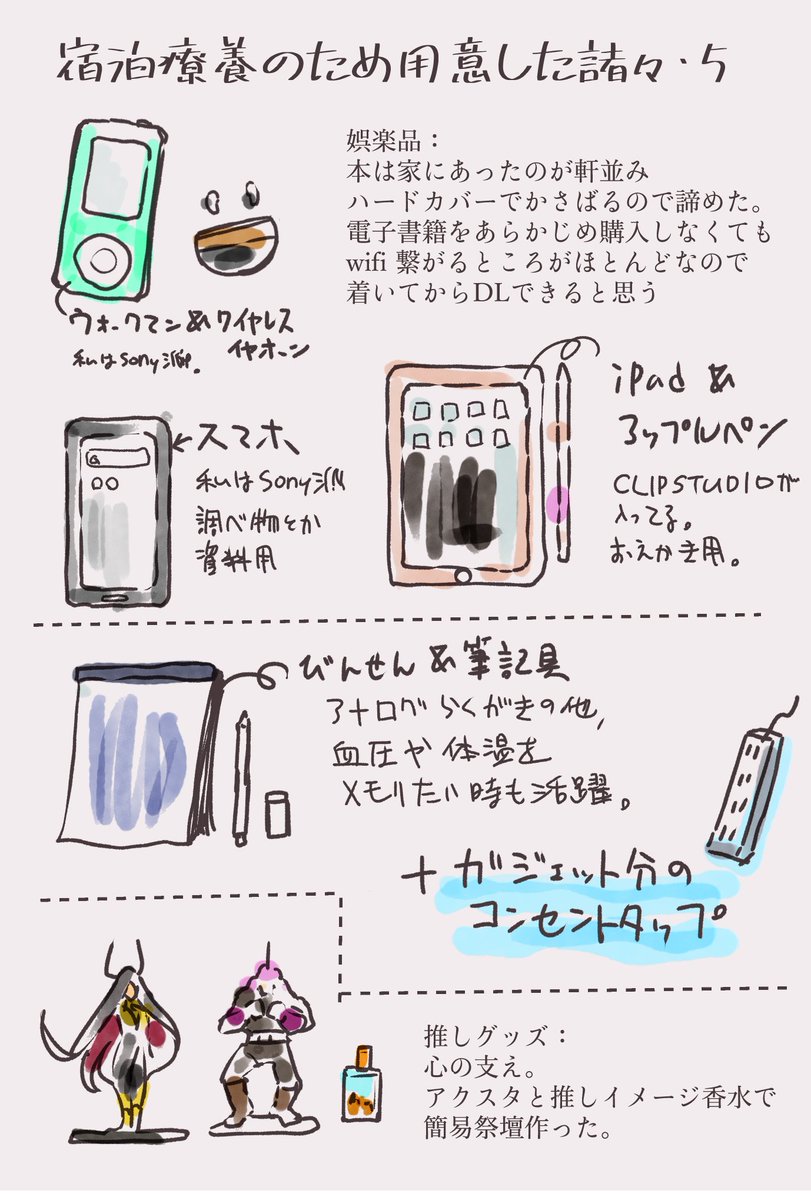 宿泊療養のため用意した諸々・5
娯楽品：
本は家にあったのが軒並み
ハードカバーでかさばるので諦めた。
電子書籍をあらかじめ購入しなくても
wifi 繋がるところがほとんどなので
着いてからDLできると思う
ウォークマン&ワイヤレス
イヤホーン
私はSony派。
iPad &
アップルペン
CLIP STUDIOが
入ってる。
おえかき用。
スマホ
私はSony派!!
調べ物とか
資料用
びんせん&筆記具
アナログらくがきの他、
血圧や体温を
メモりたい時も活躍。
+ガジェット分の
コンセントタップ
推しグッズ：
心の支え。
アクスタと推しイメージ香水で
簡易祭壇作った。